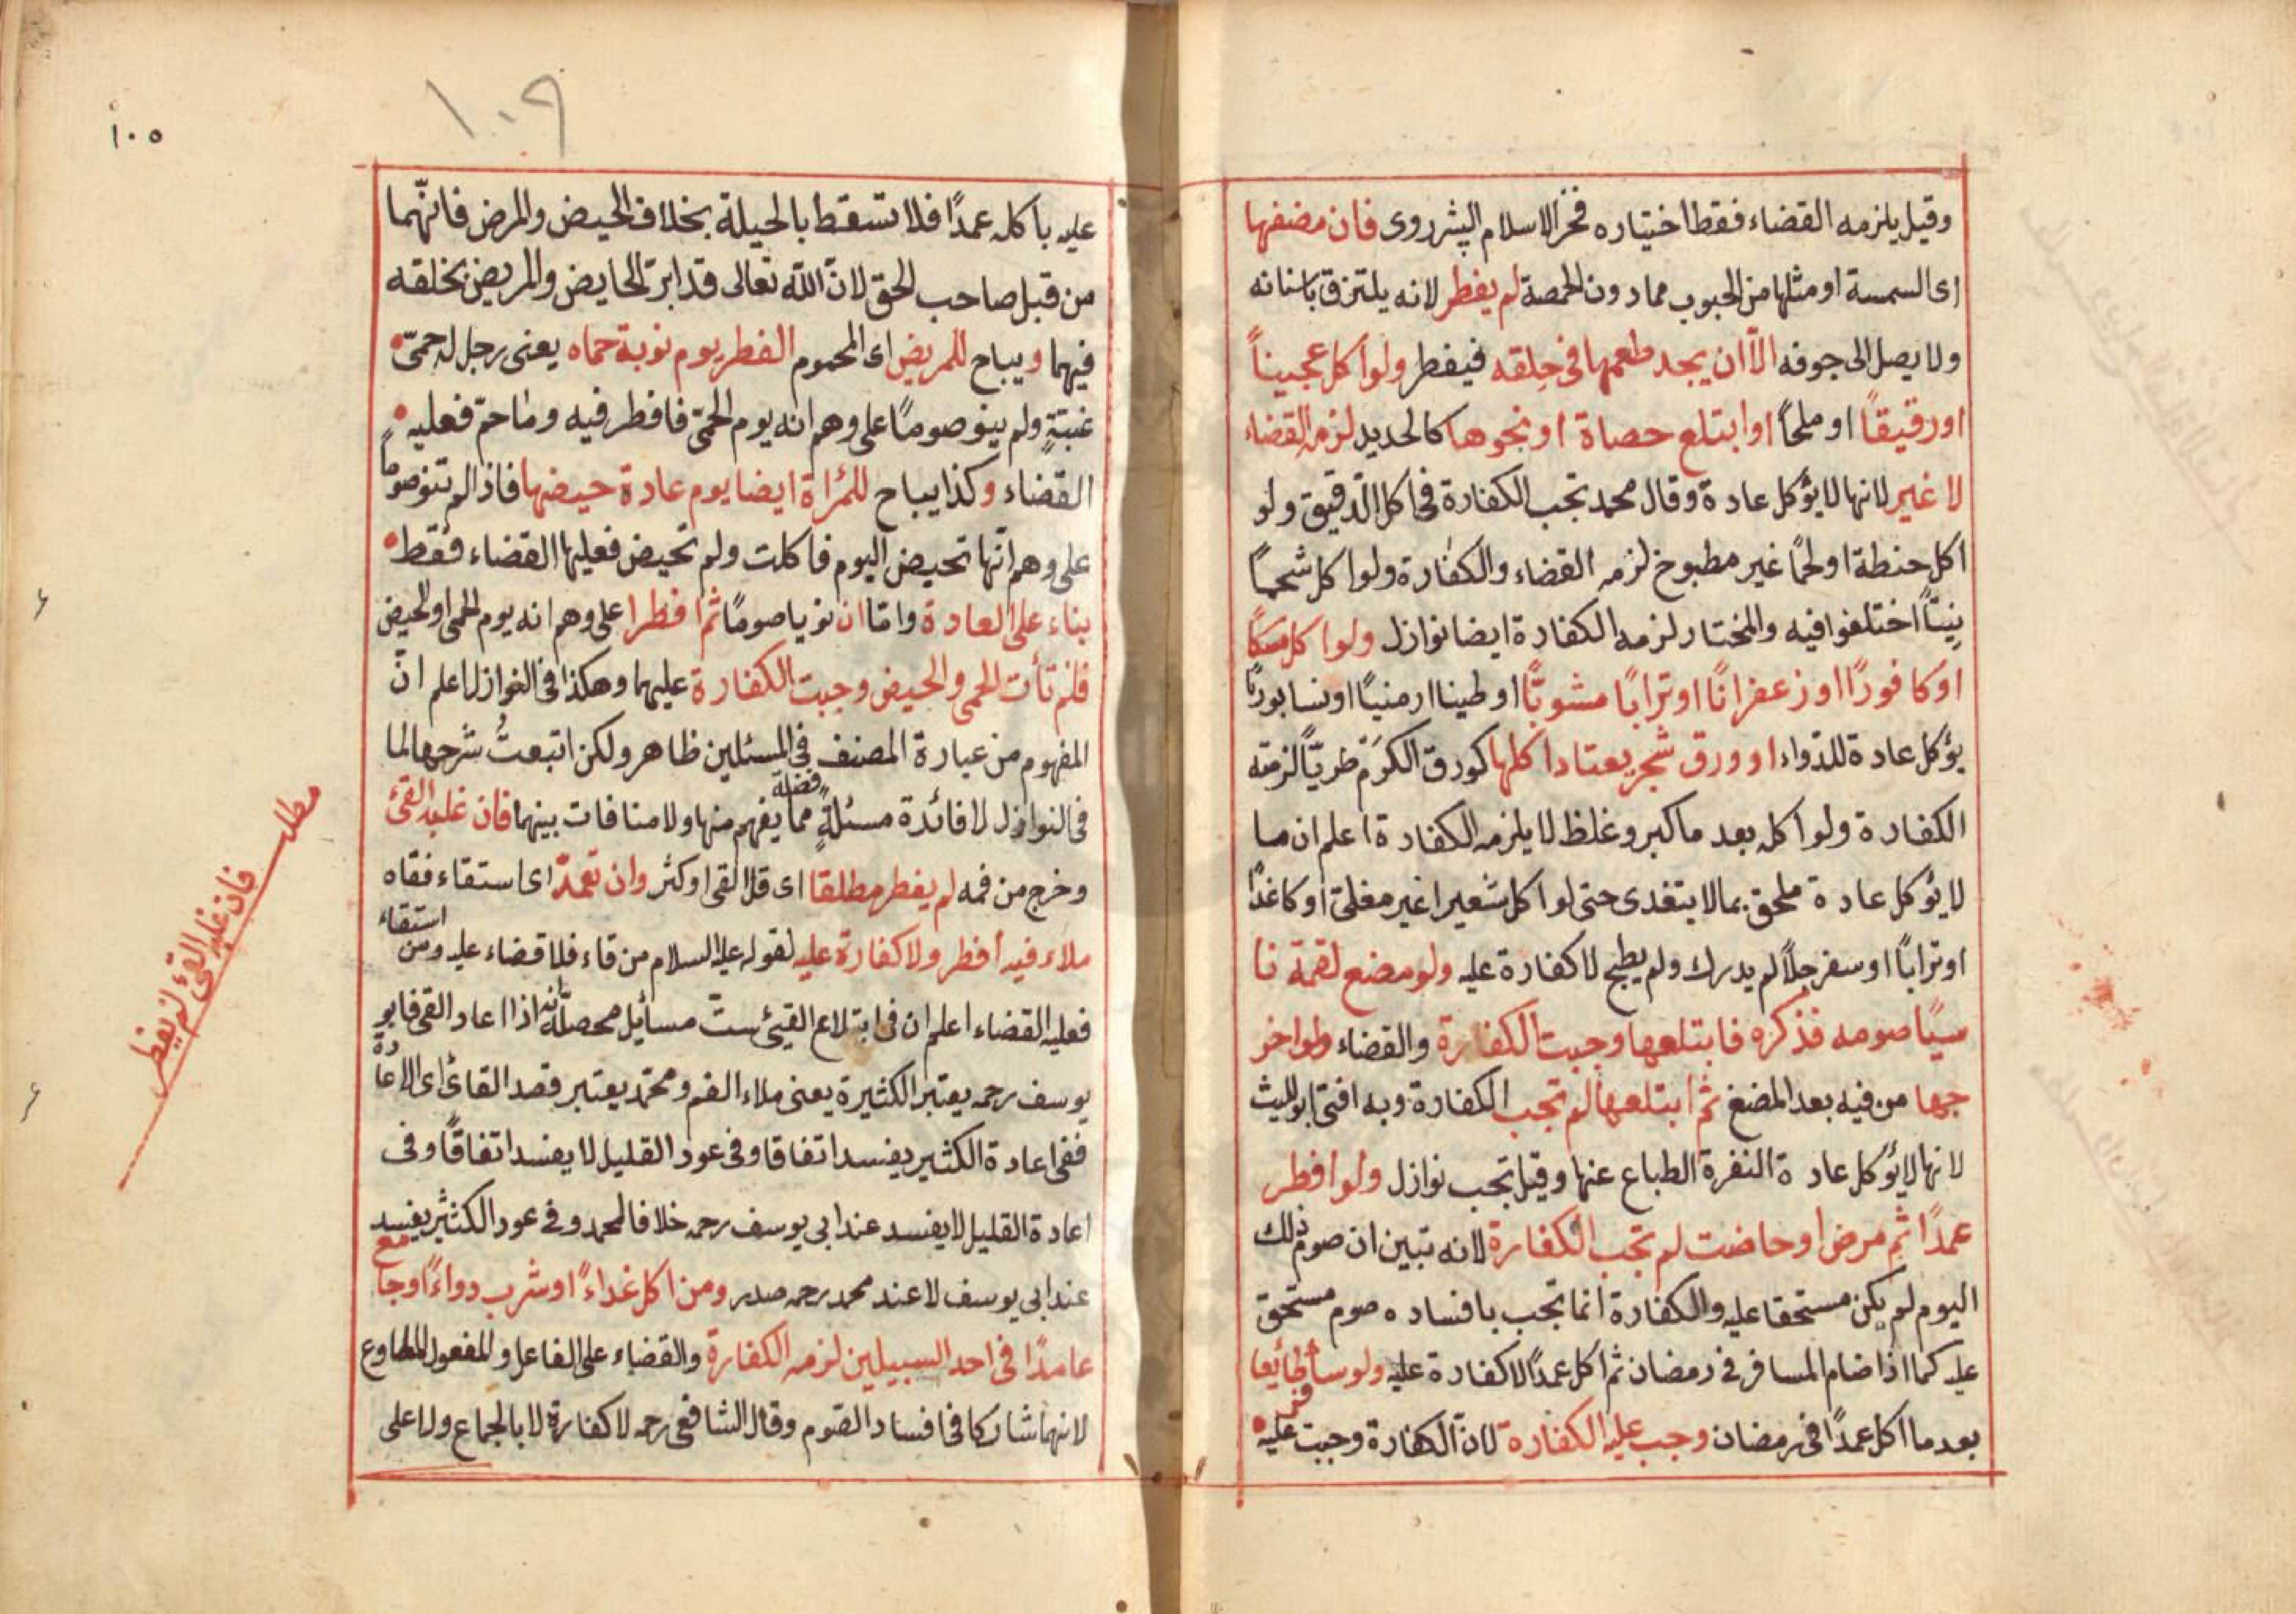 وقيل يلزمه القضاء فقط اختياره فخر الاسلام البشردوى فان مضغها
اى السمسة او مثلها من الحبوب مما دون الحمصة لم يفطر لانه يلتزق باسنانه
ولا يصل الى جوفه الاّ ان يجد طعمها فى حلقه فيفطر ولو اكل عجيناً
او رقيقًا او ملحًا او ابتلع حصاة او نحوها كالحديد لزمه القضاء
لا غير لانها لا يؤكل عادة وقال محمد تجب الكفارة فى اكل الدّقيق ولو
اكل حنطة او لحمًا غير مطبوخ لزمه القضاء والكفارة ولو اكل شحمًا
نِيّتًا اختلفوا فيه والمختار لزمه الكفارة ايضا نوازل ولو اكل مسكًا
او كافورًا او زعفرانًا او ترابًا مشويًّا او طينا ارمنيًا او نسابوريًا
يؤكل عادة للدّواء او ورق شجر يعتاد اكلها كورق الكَرَم طريّاً لزمته
الكفارة ولو اكله بعد ما كبر وغلظ لا يلزمه الكفارة اعلم ان ما
لا يؤكل عادة ملحق بما لا يتغدى حتى لو اكل شعيرا غير مغلىّ او كاغذًا
او ترابًا او سفرجلًا لم يدرك ولم يطبخ لا كفارة عليه ولو مضغ لقمة نا
سيًا صومه فذكره فابتلعها وجبت الكفارة والقضاء ولو اخر
جها من فيه بعد المضغ ثم ابتلعها لم تجب الكفارة وبه افتى ابو الليث
لانها لا يؤكل عادة النفرة الطباع عنها وقيل تجب نوازل ولو افطر
عمدًا ثم مرض او حاضت لم تجب الكفارة لانه تبين ان صوم ذلك
اليوم لم يكن مستحقا عليه والكفارة انما تجب بافساده صوم مستحق
عليه كما اذا ضام المسافر فى رمضان ثم اكل عمدًا لا كفارة عليه ولو سافر طائعا
بعد ما اكل عمدًا فى رمضان وجب عليه الكفارة لانّ الكفارة وجبت عليه
١٠٩
١٠٥
عليه باكله عمدًا فلا تسقط بالحيلة بخلاف الحيض والمرض فانّهما
من قبل صاحب الحق لانّ اللّه تعالى قد ابرّ الحايض والمريض بخلقه
فيهما ويباح للمريض اى المحموم الفطر يوم نوبة حماه يعنى رجل له حمىّ
غبّةٍ ولم ينو صومًا على وهم انه يوم الحمىّ فافطر فيه وما حمّ فعليه
القضاء وكذا يباح للمرأة ايضا يوم عادة حيضها فاذا لم تنو صومًا
على وهم انّها تحيض اليوم فاكلت ولم تحيض فعليها القضاء فقط
بناء على العادة وامّا ان نويا صومًا ثم افطرا على وهم انه يوم الحمى او الحيض
فلم تأت الحمى والحيض وجبت الكفارة عليهما وهكذا فى النوازل اعلم انّ
المفهوم من عبارة المصنف فى المسئلين ظاهر ولكن اتبعتُ شرحها لما
فى النوازل لا فائدة مسئلةٍ فضلة مما يفهم منها ولا منافات بينهما فان غلبه القئ
وخرج من فمه لم يفطر مطلقا اى قلّ القى او كثر وان تعمدّ اى استقاء فقاه
ملاء فيه افطر ولا كفارة عليه لقوله عليه السلام من قاء فلا قضاء عليه ومن استقاء
فعليه القضاء اعلم ان فى ابتلاع القيئ ستّ مسائل محصله انّه اذا اعاد القى فابو
يوسف رحمه يعتبر الكثيرة يعنى ملاء الفم ومحمّد يعتبر قصد القائ اى الاعادة
ففى اعادة الكثير يفسد اتفاقا وفى عود القليل لا يفسد اتفاقًا وفى
اعادة القليل لا يفسد عند ابى يوسف رحمه خلافا لمحمد وفى عود الكثير يفسد
عند ابى يوسف لا عند محمد رحمه صدر ومن اكل غداءً او شرب دواءً او جامع
عامدًا فى احد السبيلين لزمه الكفارة والقضاء على الفاعل والمفعول المطاوع
لانهما شاركا فى افساد الصّوم وقال الشافعى رحمه لا كفارة الا بالجماع ولا على
مطلب
فان غلبه القئ لم يفطر